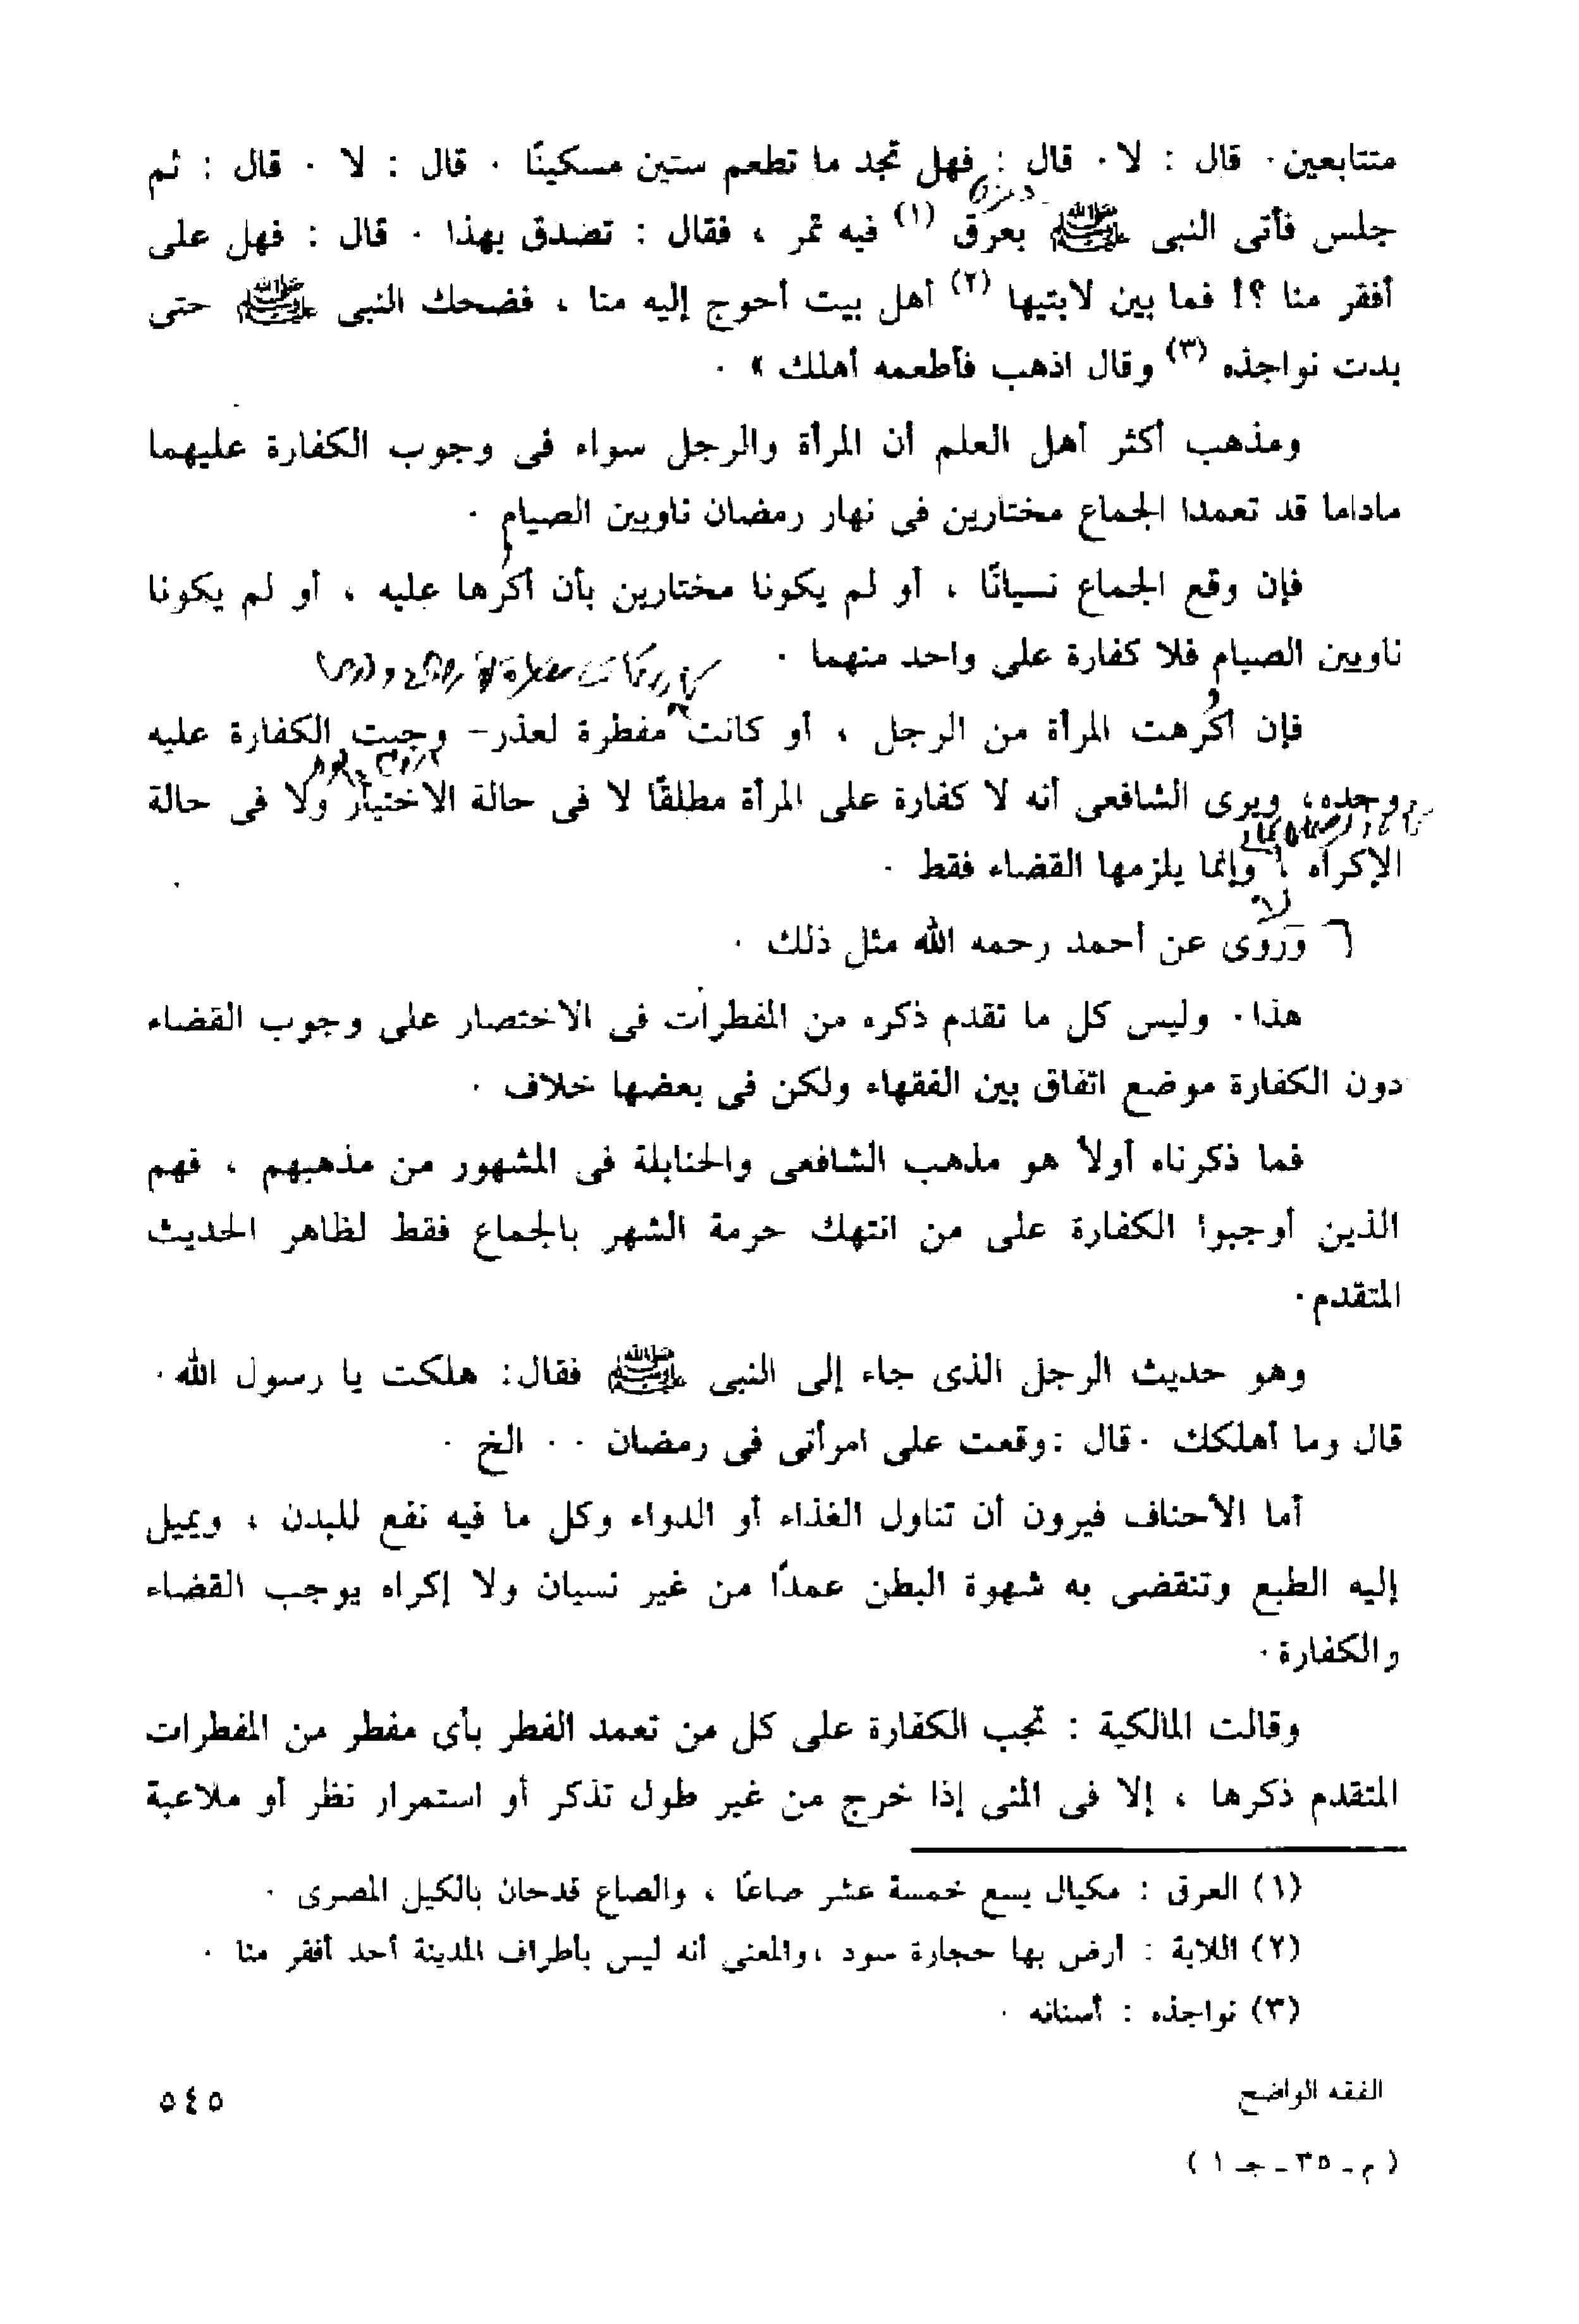 متتابعين٠ قال : لا٠ قال : فهل تجد ما تطعم ستين مسكينًا ٠ قال : لا ٠ قال : ثم
جلس فأتى النبى ﷺ بعرق (١) فيه تمر ، فقال : تصدق بهذا ٠ قال : فهل على
أفقر منا ؟! فما بين لابتيها (٢) أهل بيت أحوج إليه منا ، فضحك النبى ﷺ حتى
بدت نواجذه (٣) وقال اذهب فأطعمه أهلك » ٠
ومذهب أكثر أهل العلم أن المرأة والرجل سواء فى وجوب الكفارة عليهما
ماداما قد تعمدا الجماع مختارين فى نهار رمضان ناويين الصيام ٠
فإن وقع الجماع نسيانًا ، أو لم يكونا مختارين بأن أكرها عليه ، أو لم يكونا
ناويين الصيام فلا كفارة على واحد منهما ٠
فإن أكُرهت المرأة من الرجل ، أو كانت مفطرة لعذر- وجبت الكفارة عليه
وحده، ويرى الشافعى أنه لا كفارة على المرأة مطلقًا لا فى حالة الاختيار ولا فى حالة
الإكراه ، وإنما يلزمها القضاء فقط ٠
وَرَوَى عن أحمد رحمه الله مثل ذلك ٠
هذا٠ وليس كل ما تقدم ذكره من المفطرات فى الاختصار على وجوب القضاء
دون الكفارة موضع اتفاق بين الفقهاء ولكن فى بعضها خلاف ٠
فما ذكرناه أولاً هو مذهب الشافعى والحنابلة فى المشهور من مذهبهم ، فهم
الذين أوجبوا الكفارة على من انتهك حرمة الشهر بالجماع فقط لظاهر الحديث
المتقدم٠
وهو حديث الرجل الذى جاء إلى النبى ﷺ فقال: هلكت يا رسول الله٠
قال وما أهلكك ٠قال :وقعت على امرأتى فى رمضان ٠٠ الخ ٠
أما الأحناف فيرون أن تناول الغذاء أو الدواء وكل ما فيه نفع للبدن ، ويميل
إليه الطبع وتنقضى به شهوة البطن عمدًا من غير نسيان ولا إكراه يوجب القضاء
والكفارة٠
وقالت المالكية : تجب الكفارة على كل من تعمد الفطر بأى مفطر من المفطرات
المتقدم ذكرها ، إلا فى المنى إذا خرج من غير طول تذكر أو استمرار نظر أو ملاعبة
(١) العرق : مكيال يسع خمسة عشر صاعًا ، والصاع قدحان بالكيل المصرى ٠
(٢) اللابة : أرض بها حجارة سود ،والمعنى أنه ليس بأطراف المدينة أحد أفقر منا ٠
(٣) نواجذه : أسنانه ٠
الفقه الواضح
٥٤٥
( م ـ ٣٥ ـ جـ ١ )